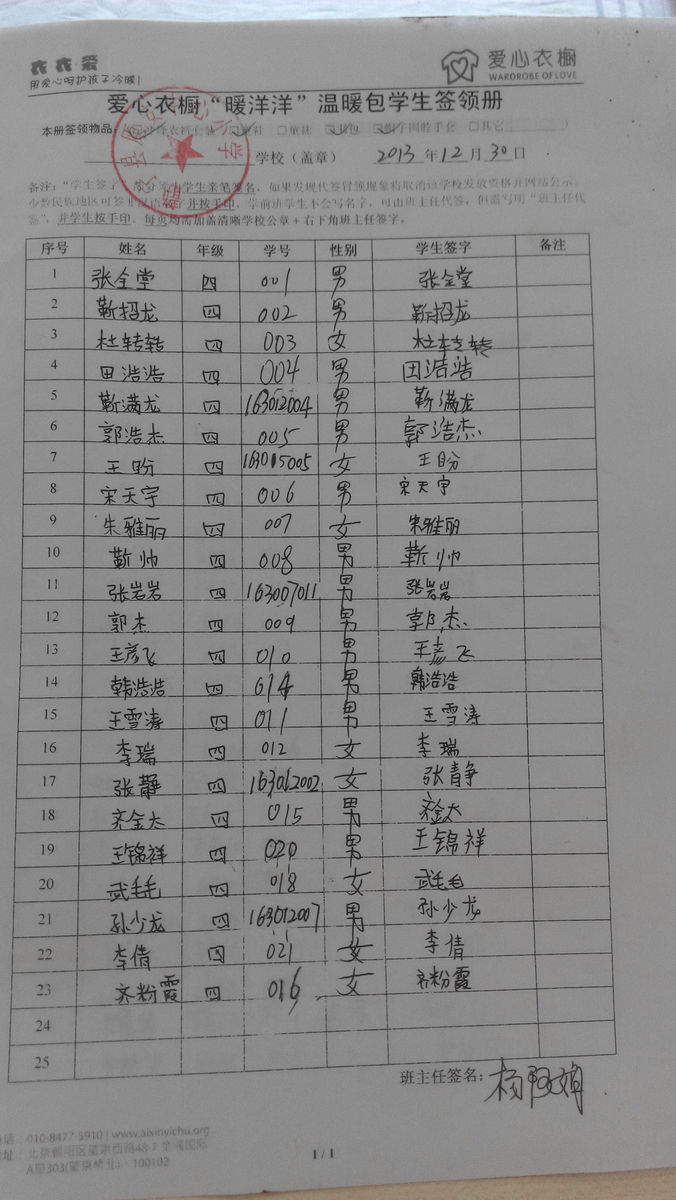 衣衣爱
用爱心呵护孩子冷暖!
爱心衣橱
WARDROBE OF LOVE
爱心衣橱“暖洋洋”温暖包学生签领册
本册签领物品: 童鞋 □童袜 书包 帽子围脖手套 □其它
学校（盖章） 2013年12月30日
备注：“学生签字”部分须由学生亲笔签名，如果发现代签冒领现象将取消该学校发放资格并网站公示。
少数民族地区可签 并按手印。学前班学生不会写名字，可由班主任代签，但需写明“班主任代
签”，并学生按手印。每页均需加盖清晰学校公章+右下角班主任签字。
序号 姓名 年级 学号 性别 学生签字 备注
1 张全堂 四 001 男 张全堂
2 靳招龙 四 002 男 靳招龙
3 杜转转 四 003 女 杜转转
4 田浩浩 四 004 男 田浩浩
5 靳满龙 四 163012004 男 靳满龙
6 郭浩杰 四 005 男 郭浩杰
7 王盼 四 163015005 女 王盼
8 宋天宇 四 006 男 宋天宇
9 朱雅丽 四 007 女 朱雅丽
10 靳帅 四 008 男 靳帅
11 张岩岩 四 163007011 男 张岩岩
12 郭杰 四 009 男 郭杰
13 王彦飞 四 010 男 王彦飞
14 韩浩浩 四 014 男 韩浩浩
15 王雪涛 四 011 男 王雪涛
16 李瑞 四 012 女 李瑞
17 张静 四 163062002 女 张静
18 齐金太 四 015 男 齐金太
19 王锦祥 四 020 男 王锦祥
20 武毛毛 四 018 女 武毛毛
21 孙少龙 四 163012007 男 孙少龙
22 李倩 四 021 女 李倩
23 齐粉霞 四 016 女 齐粉霞
24
25
班主任签名：杨
电话：010-8477-5910 | www.aixinyichu.org
地址：北京朝阳区望京西路48-7金隅国际
A座303(望京桥北)· 100102
1 / 1